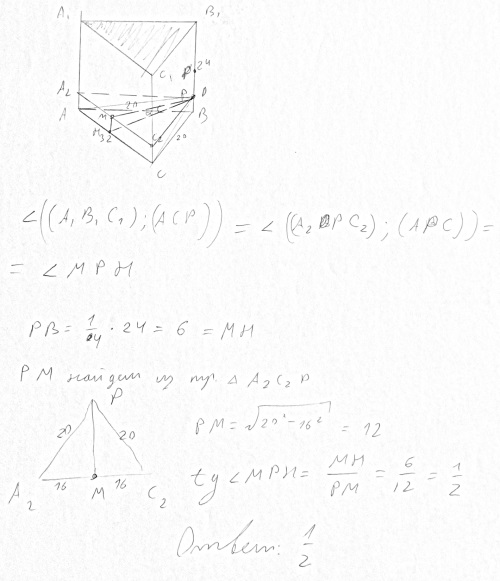 A₁ B₁
C₁ P 24
A₂ 20 P D
A M B
H 32 C₂ 20
C
∠((A₁B₁C₁);(ACP)) = ∠((A₂PC₂);(APC)) =
= ∠MPH
PB = 1/4 · 24 = 6 = MH
PM найдем из тр. △ A₂C₂P
P
20 20 PM = √(20² - 16²) = 12
A₂ 16 M 16 C₂ tg ∠MPH = MH/PM = 6/12 = 1/2
Ответ: 1/2